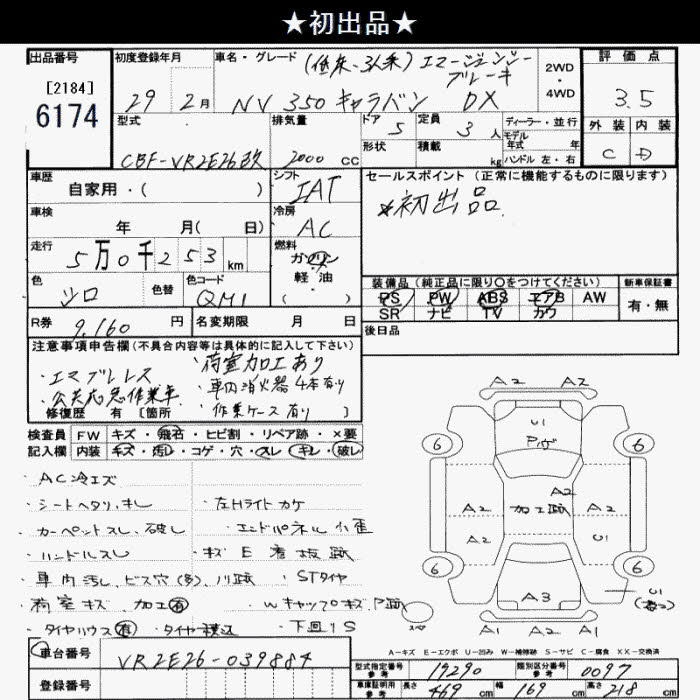 ★初出品★
出品番号
[2184]
6174
初度登録年月
29 2月
車名・グレード (低床・3人乗) エマージェンシー
ブレーキ
NV350キャラバン DX
2WD
・
4WD
評価点
3.5
型式
CBF-VR2E26改
排気量
2000 cc
ドア 5
形状
定員 3 人
積載 kg
ディーラー・並行
モデル
年式 年
ハンドル 左・右
外装 内装
C D
車歴
自家用・( )
シフト
IAT
セールスポイント (正常に機能するものに限ります)
※初出品
車検
年 月( 日)
冷房
AC
走行
5万0千253 km
燃料
ガソリン
軽・油
( )
色
シロ
色替
色コード
QM1
装備品(純正品に限り○をつけてください)
PS PW ABS エアB AW
SR ナビ TV カワ
新車保証書
有・無
R券 9,160 円
名変期限 月 日
後日品
注意事項申告欄(不具合内容等は具体的に記入して下さい)
・エマブレレス
・公共応急作業車
・荷室加工あり
・車内消火器4本有り
・作業ケース有り
修復歴 有 [箇所 ]
検査員 FW キズ・飛石・ヒビ割・リペア跡・×要
記入欄 内装 キズ・汚レ・コゲ・穴・スレ・キレ・破レ
・AC冷エズ
・シートヘタリ、キレ
・左Hライトカケ
・カーペントスレ、破レ
・エンドパネル小歪
・ハンドルスレ
・キズ E 看板跡
・車内汚レ、ビス穴(多)、ハリ跡
・STタイヤ
・荷室キズ、加工有
・WキャップキズP跡
・タイヤハウス有
・タイヤ積込
・下回りS
A2 A2
U1
Pヶ
6 6
A2
A2 加工跡 A2
A2 U1
6 6
A3
U1
A1 A2 A1
A-キズ E-エクボ U-凹み W-補修跡 S-サビ C-腐食 XX-交換済
車台番号 VR2E26-039884
登録番号
型式指定番号
参考
19290
類別区分番号
参考
0097
車庫証明用
参考
長さ 469 cm 幅 169 cm 高さ 218 cm